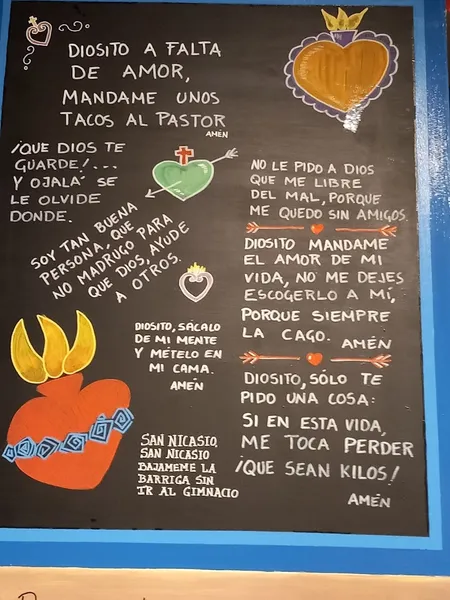 DIOSITO A FALTA
DE AMOR,
MANDAME UNOS
TACOS AL PASTOR
AMÉN
¡QUE DIOS TE
GUARDE!...
Y OJALÁ SE
LE OLVIDE
DONDE.
SOY TAN BUENA
PERSONA, QUE
NO MADRUGO PARA
QUE DIOS, AYUDE
A OTROS.
NO LE PIDO A DIOS
QUE ME LIBRE
DEL MAL, PORQUE
ME QUEDO SIN AMIGOS.
DIOSITO MANDAME
EL AMOR DE MI
VIDA, NO ME DEJES
ESCOGERLO A MÍ,
PORQUE SIEMPRE
LA CAGO. AMÉN
DIOSITO, SÁCALO
DE MI MENTE
Y MÉTELO EN
MI CAMA.
AMÉN
DIOSITO, SÓLO TE
PIDO UNA COSA:
SI EN ESTA VIDA,
ME TOCA PERDER
¡QUE SEAN KILOS!
AMÉN
SAN NICASIO,
SAN NICASIO
BAJAMEME LA
BARRIGA SIN
IR AL GIMNACIO